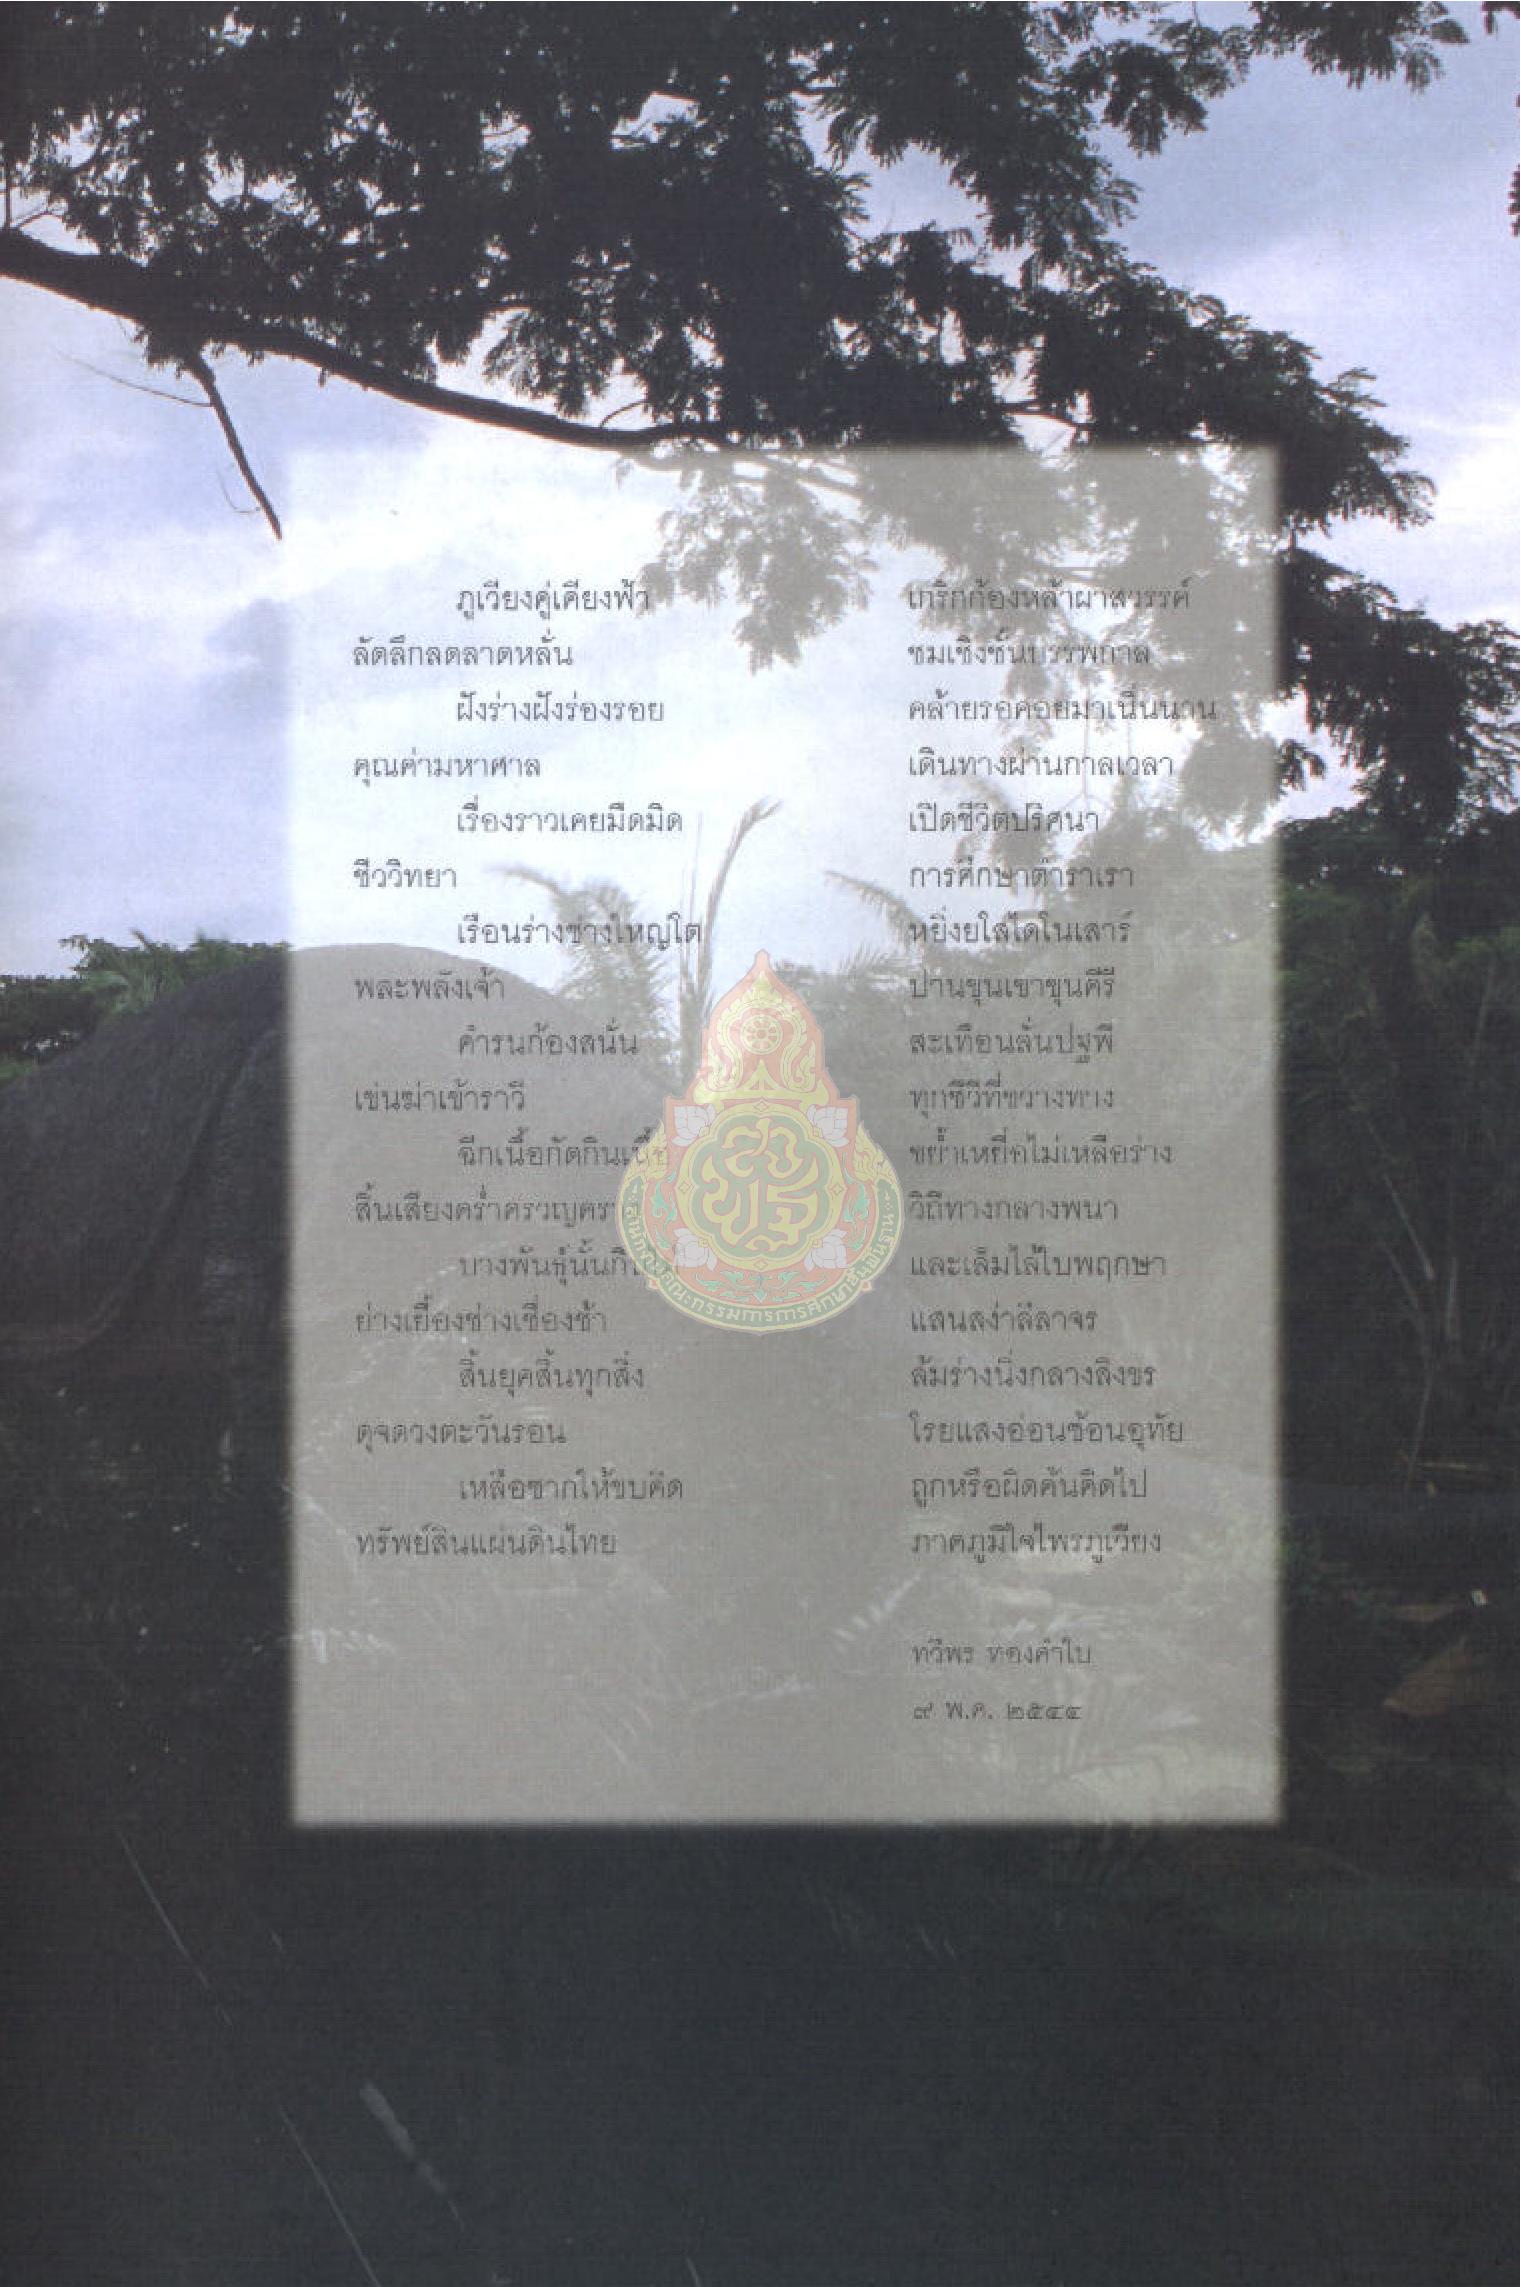 ภูเวียงคู่เคียงฟ้า เกริกก้องหล้าผาสวรรค์
ลัดลึกลดลาดหลั่น ชมเชิงชั้นบรรพกาล
ฝังร่างฝังร่องรอย คล้ายรอคอยมาเนิ่นนาน
คุณค่ามหาศาล เดินทางผ่านกาลเวลา
เรื่องราวเคยมืดมิด เปิดชีวิตปริศนา
ชีววิทยา การศึกษาตำราเรา
เรือนร่างช่างใหญ่โต หยิ่งยโสไดโนเสาร์
พละพลังเจ้า ปานขุนเขาขุนคีรี
คำรนก้องสนั่น สะเทือนลั่นปฐพี
เข่นฆ่าเข้าราวี ทุกชีวีที่ขวางทาง
ฉีกเนื้อกัดกินเนื้อ ขย้ำเหยื่อไม่เหลือร่าง
สิ้นเสียงคร่ำครวญ วิถีทางกลางพนา
บางพันธุ์นั้น และเล็มไล้ใบพฤกษา
ย่างเยื้องช่างเชื่องช้า แสนสง่าลีลาจร
สิ้นยุคสิ้นทุกสิ่ง ล้มร่างนิ่งกลางสิงขร
ดุจดวงตะวันรอน โรยแสงอ่อนซ้อนอุทัย
เหลือซากให้ขบคิด ถูกหรือผิดค้นคิดไป
ทรัพย์สินแผ่นดินไทย ภาคภูมิใจไพรภูเวียง
ทวีพร ทองคำใบ
๙ พ.ค. ๒๕๔๔
สำนักงานคณะกรรมการการศึกษาขั้นพื้นฐาน